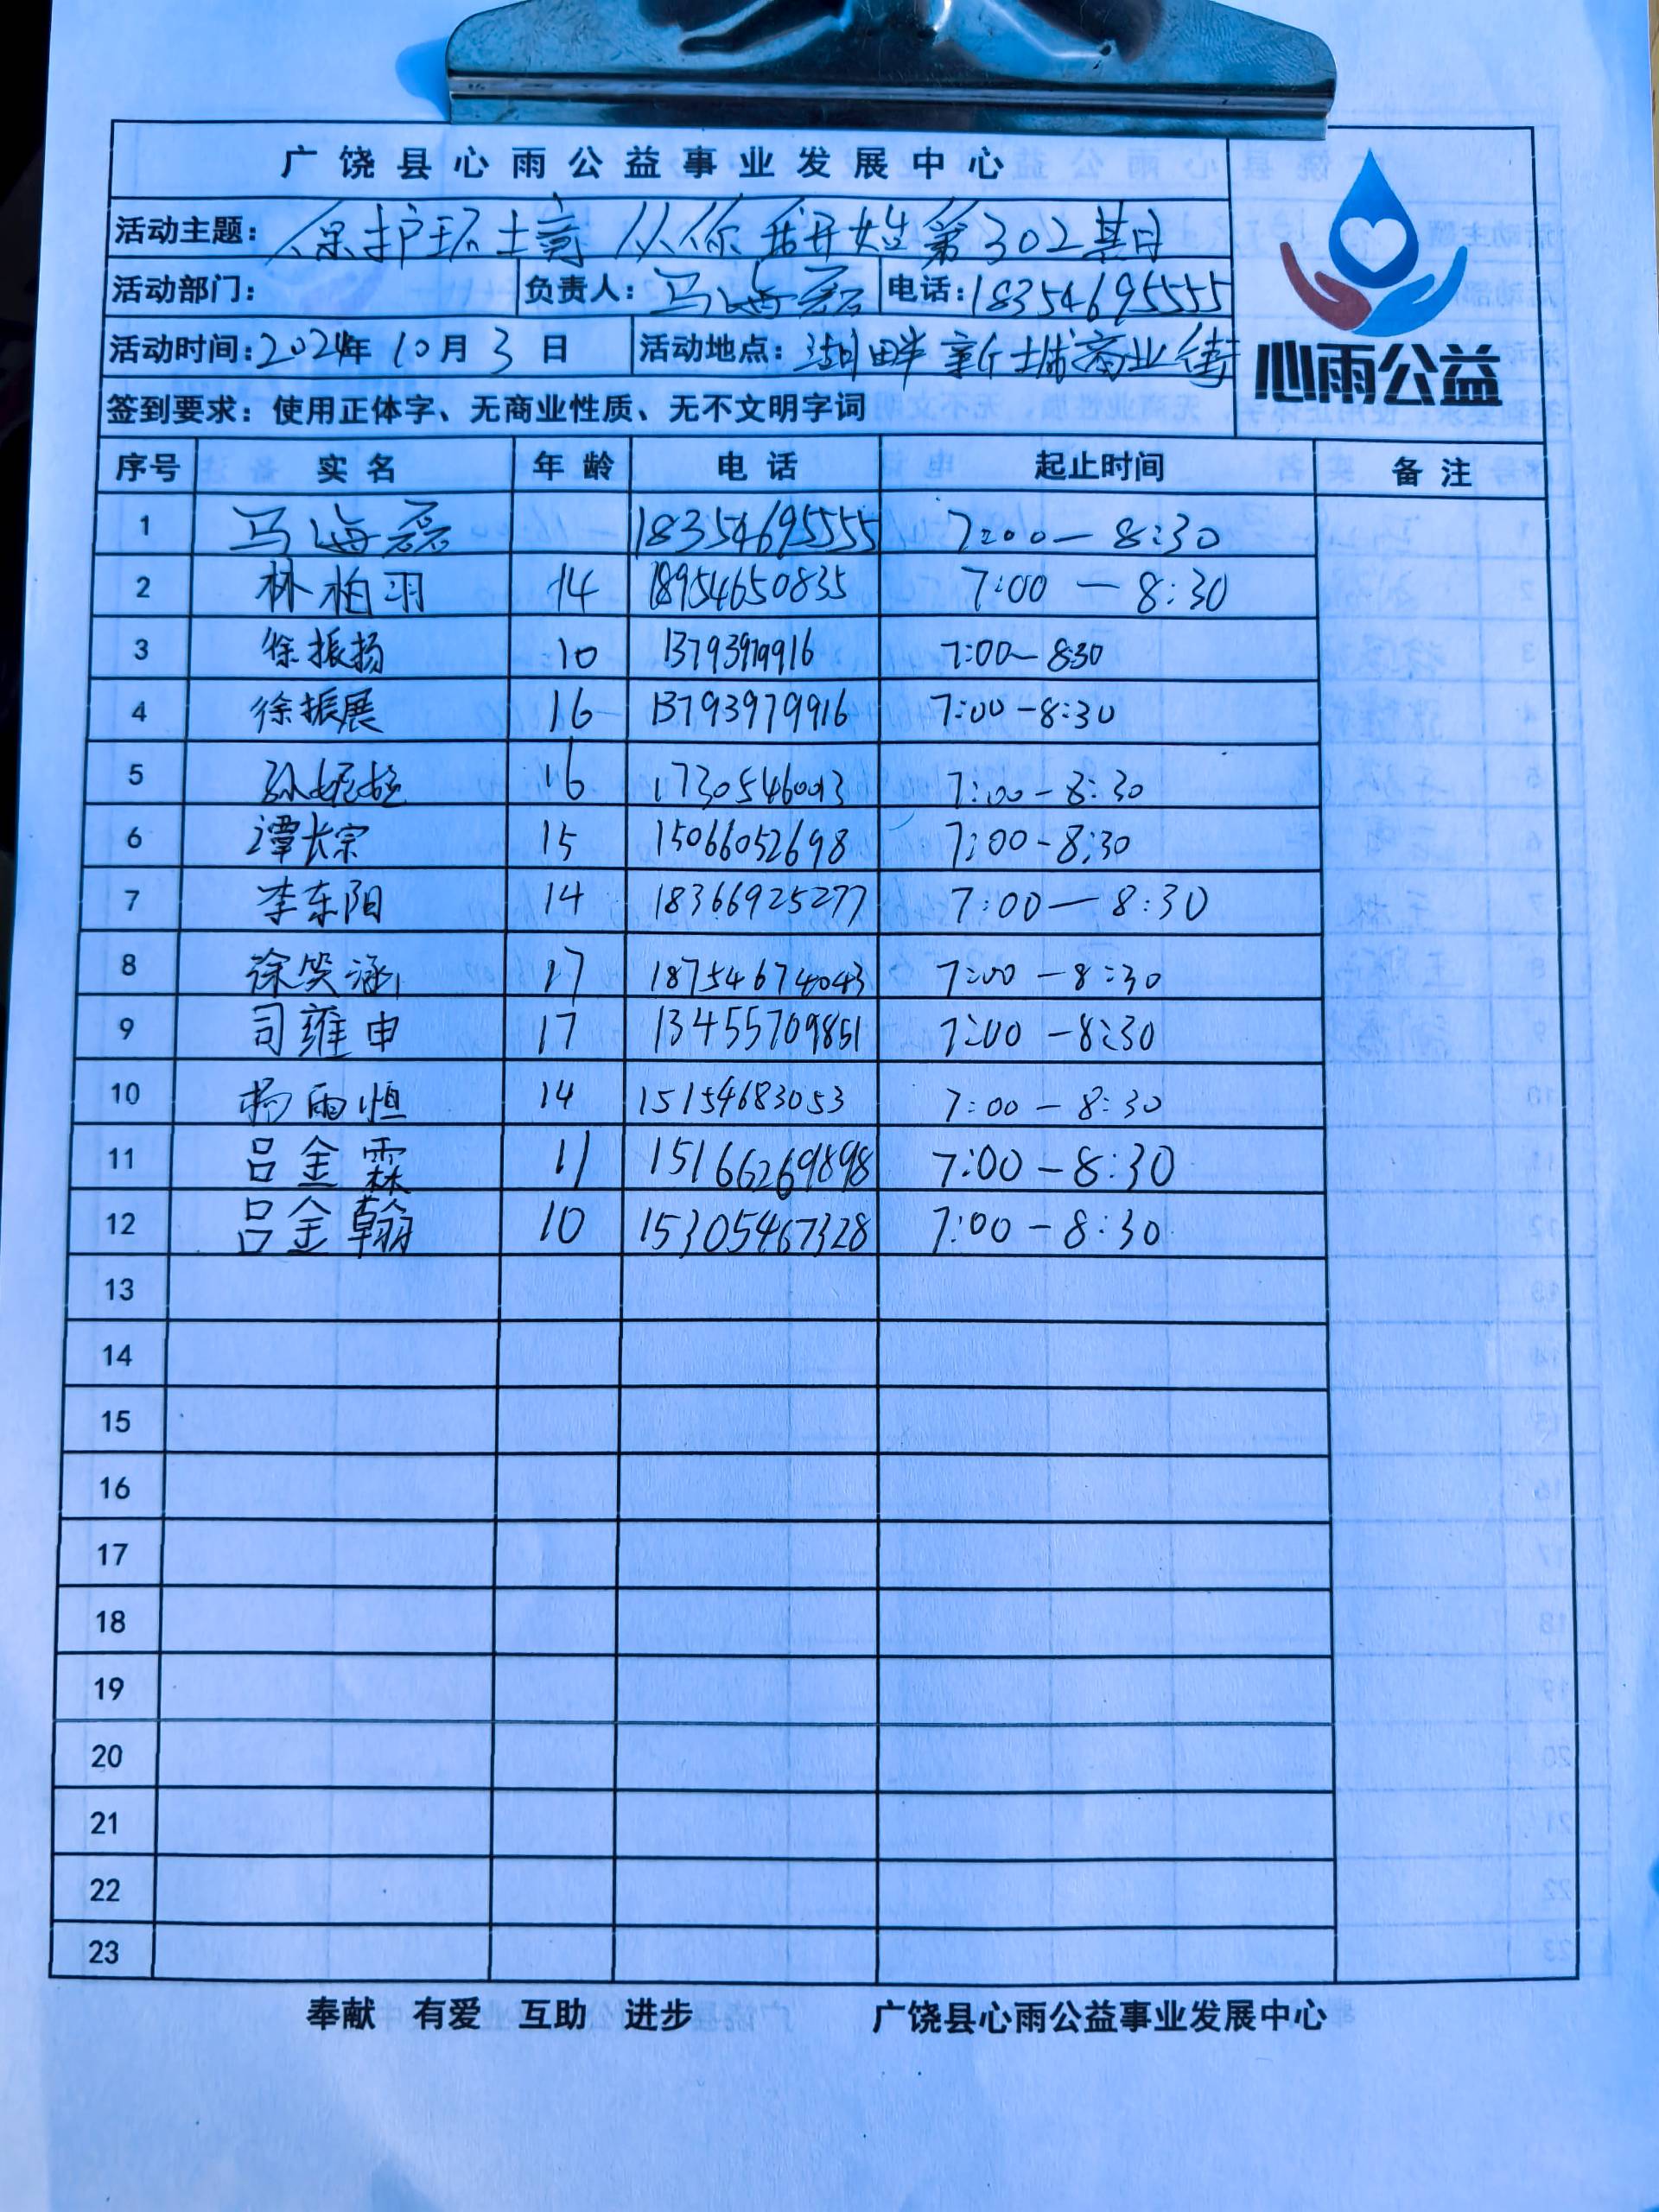 广饶县心雨公益事业发展中心
活动主题：保护环境 从你我开始第302期
活动部门： 负责人：马海磊 电话：18354695555
活动时间：2024年10月3日 活动地点：湖畔新城商业街
心雨公益
签到要求：使用正体字、无商业性质、无不文明字词
序号 实名 年龄 电话 起止时间 备注
1 马海磊 18354695555 7:00—8:30
2 林柏羽 14 18954650835 7:00—8:30
3 徐振扬 10 13793979916 7:00—830
4 徐振展 16 13793979916 7:00-8:30
5 16 7:00-8:30
6 谭长宗 15 15066052698 7:00-8:30
7 李东阳 14 18366925277 7:00—8:30
8 徐笑涵 17 18754674043 7:00-8:30
9 司雍申 17 13455709851 7:00-8:30
10 杨雨恒 14 15154683053 7:00-8:30
11 吕金霖 11 15166269898 7:00-8:30
12 吕金翰 10 15305467328 7:00-8:30
13
14
15
16
17
18
19
20
21
22
23
奉献 有爱 互助 进步 广饶县心雨公益事业发展中心